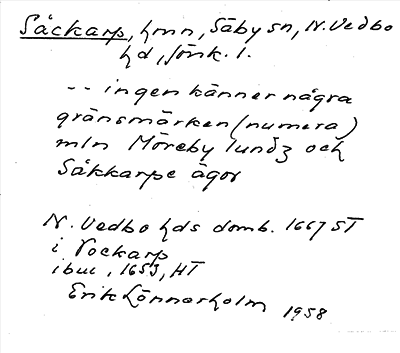 Såckarp, hmn, Säby sn, N. Vedbo
hd, Jönk. l.
-- ingen känner några
gränsmärken (numera)
mln Möreby lundz och
Såkkarpe ägor
N. Vedbo hds domb. 1667 ST
i Vockarp
ibid, 1653, HT
Erik Lönnerholm 1958